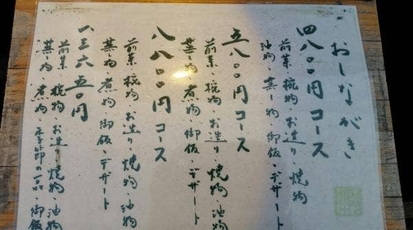 おしながき
四八〇〇円コース
前菜・椀物・お造り・焼物
油物・蒸し物・御飯・デザート
五八〇〇円コース
前菜・椀物・お造り・焼物・油物
蒸し物・煮物・御飯・デザート
八八〇〇円コース
前菜・椀物・お造り・焼物・油物
蒸し物・煮物・御飯・デザート
一三六五〇円
前菜・椀物・お造り・焼物・油物
蒸し物・煮物・季節の一品・御飯